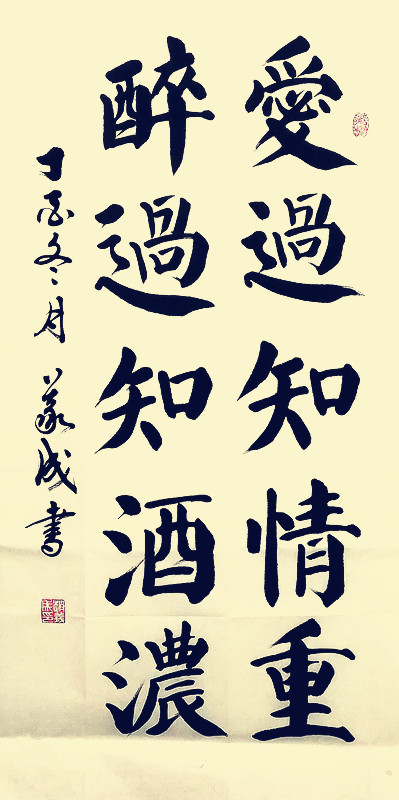 愛過知情重
醉過知酒濃
丁酉冬月 義成書